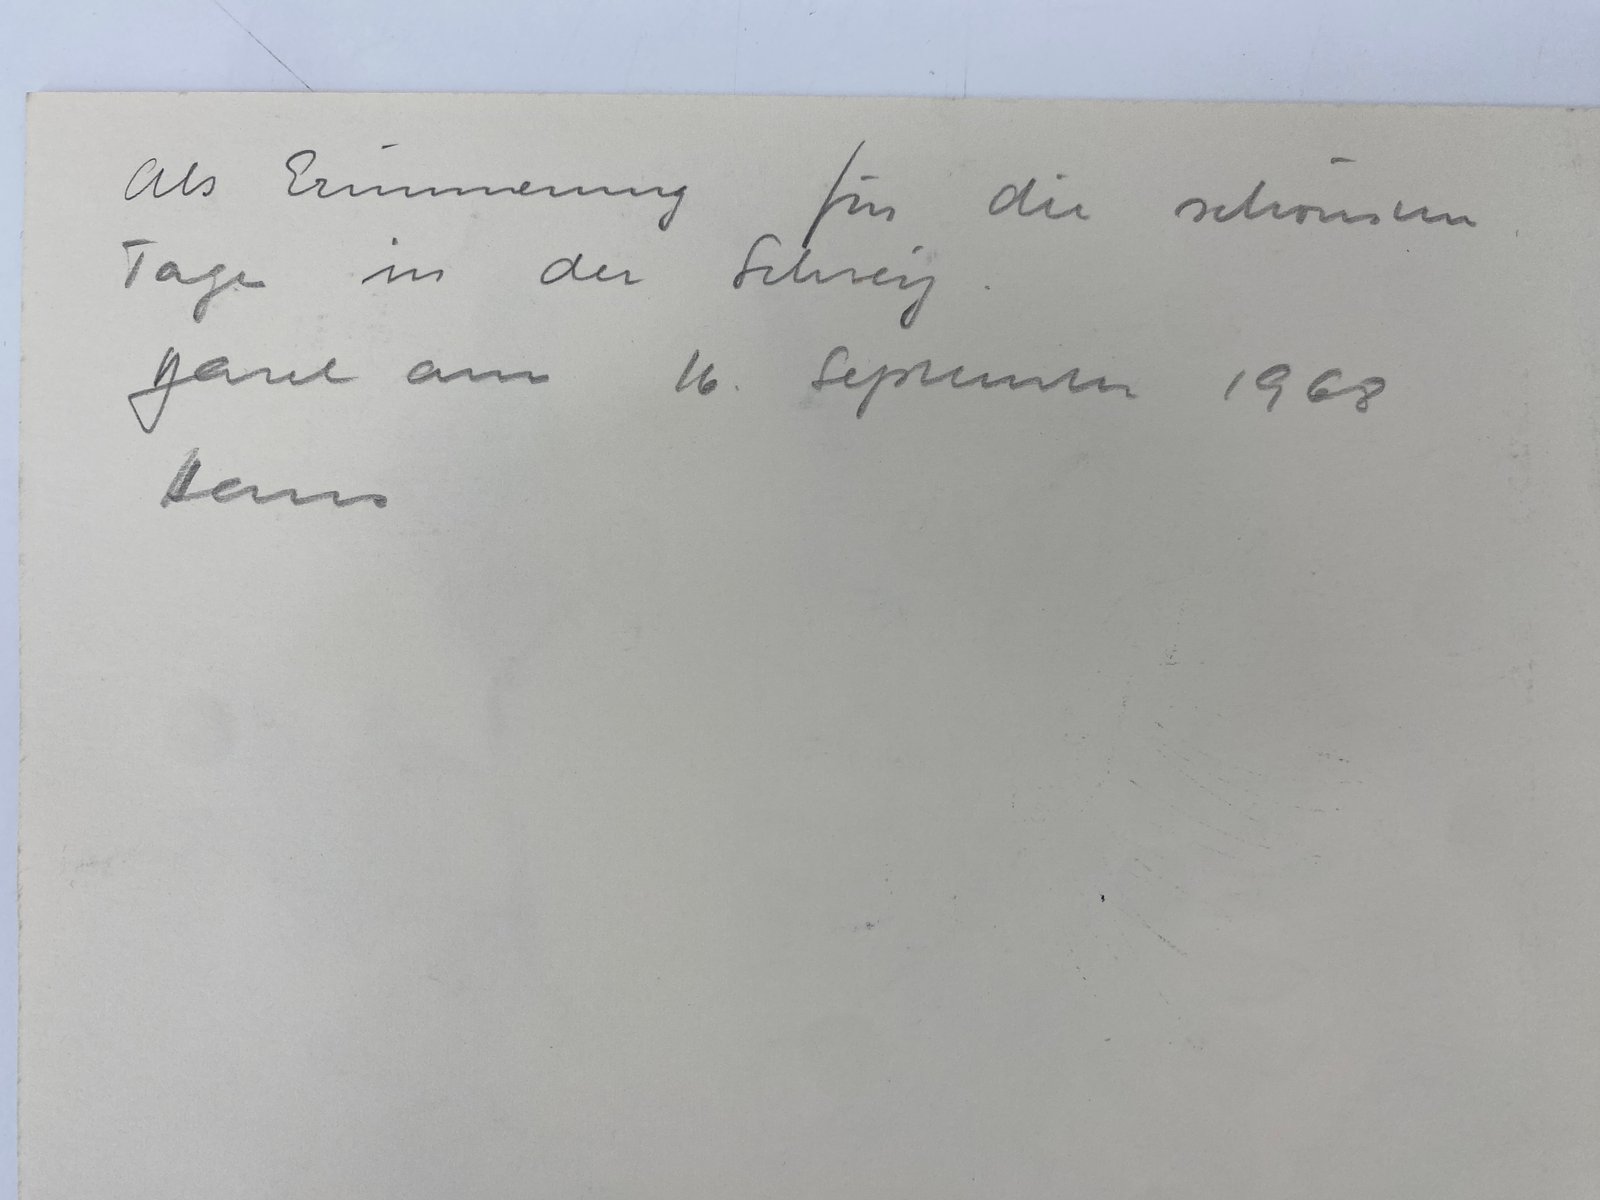 Als Erinnerung für die schönsten
Tage in der Schweiz.
am 16. September 1968
Hans